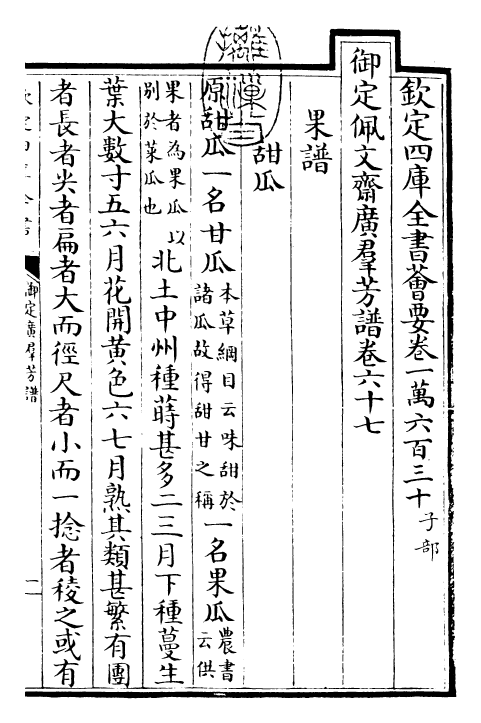 欽定四庫全書薈要卷一萬六百三十子部
御定佩文齋廣羣芳譜卷六十七
果譜
甜瓜
原甜瓜一名甘瓜本草綱目云味甜於諸瓜故得甜甘之稱一名果瓜農書云供
果者為果瓜以别於菜瓜也北土中州種蒔甚多二三月下種蔓生
葉大數寸五六月花開黄色六七月熟其類甚繁有團
者長者尖者扁者大而徑尺者小而一捻者稜之或有
御定廣羣芳譜
一